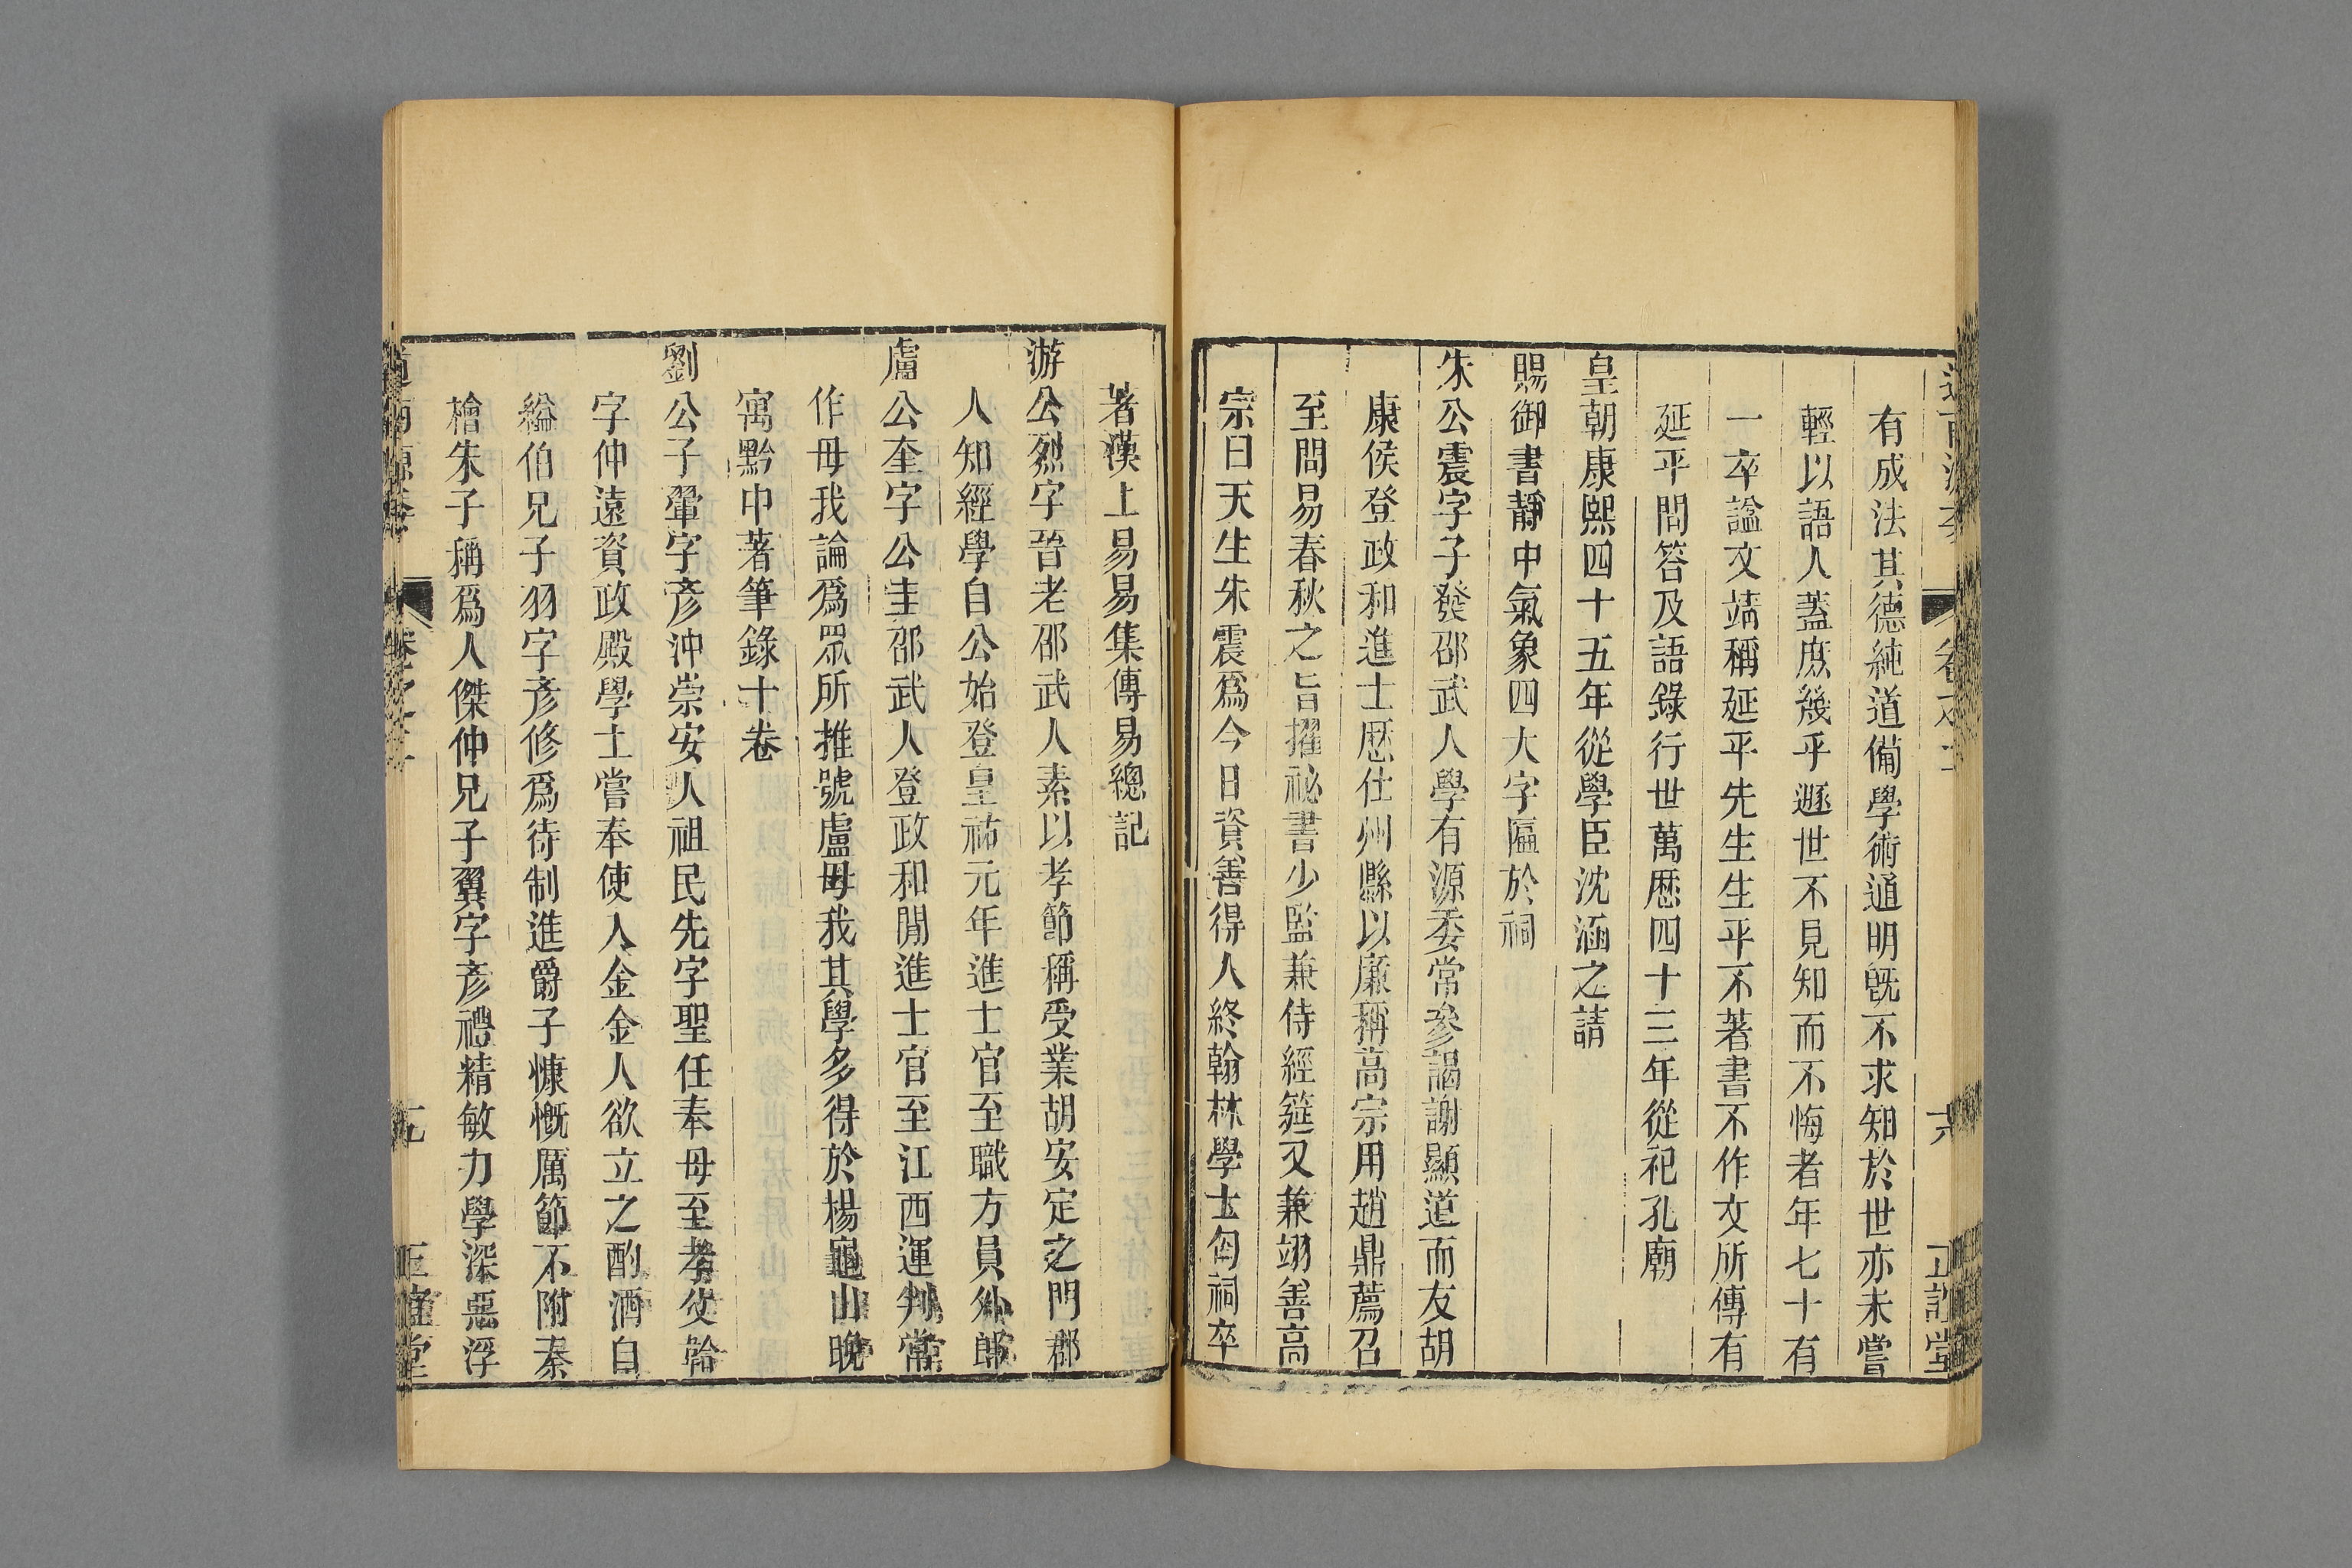 有成法其德純道備學術通明旣不求知於世亦未嘗
輕以語人蓋庶幾乎遯世不見知而不悔者年七十有
一卒諡文靖稱延平先生生平不著書不作文所傳有
延平問答及語錄行世萬歷四十三年從祀孔廟
皇朝康熙四十五年從學臣沈涵之請
賜御書靜中氣象四大字匾於祠
朱公震字子發邵武人學有源委常參謁謝顯道而友胡
康侯登政和進士歷仕州縣以廉稱高宗用趙鼎薦召
至問易春秋之旨擢祕書少監兼侍經筵又兼翊善高
宗曰天生朱震爲今日資善得人終翰林學士匄祠卒
著漢上易易集傳易總記
游公烈字晉老邵武人素以孝節稱受業胡安定之門郡
人知經學自公始登皇祐元年進士官至職方員外郎
盧公奎字公圭邵武人登政和閒進士官至江西運判常
作毋我論爲眾所推號盧毋我其學多得於楊龜山晚
寓黔中著筆錄十卷
劉公子翬字彥沖崇安人祖民先字聖任奉母至孝父韐
字仲遠資政殿學士嘗奉使入金金人欲立之酌酒自
縊伯兄子羽字彥修爲待制進爵子慷慨厲節不附秦
檜朱子稱爲人傑仲兄子翼字彥禮精敏力學深惡浮